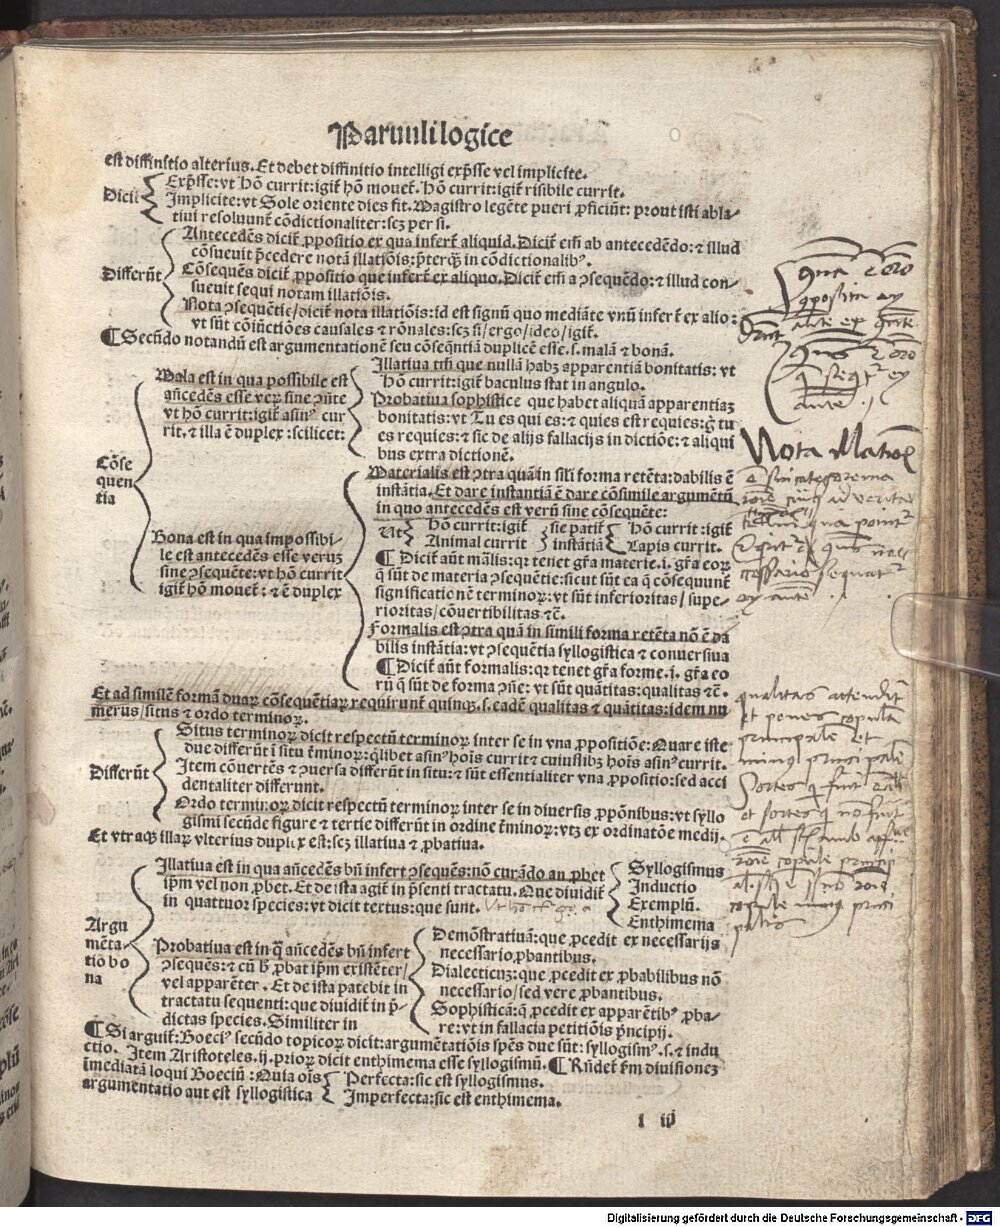 Paruuli logice
est diffinitio alterius. Et debet diffinitio intelligi exp̃sse vel implicite.
Dicit̃
Exp̃sse: vt hõ currit: igit̃ hõ mouet̃. hõ currit: igit̃ risibile currit.
Implicite: vt Sole oriente dies fit. Magistro legẽte pueri ꝓficiũt: prout isti abla-
tiui resoluunt̃ cõdictionaliter: scꝫ per si.
Differũt
Antecedẽs dicit̃ ꝓpositio ex qua infert̃ aliquid. Dicit̃ em̃ ab antecedẽdo: ⁊ illud
cõsueuit p̃cedere notã illatiõis: p̃terq̃ꝫ in cõdictionalibꝰ.
Cõsequẽs dicit̃ ꝓpositio que infert̃ ex aliquo. Dicit̃ em̃ a ꝯsequẽdo: ⁊ illud con-
sueuit sequi notam illatiõis.
Nota ꝯsequẽtie/ dicit̃ nota illatiõis: id est signũ quo mediãte vnũ infert̃ ex alio:
vt sũt cõiũctiões causales ⁊ rõnales: scꝫ si/ ergo/ ideo/ igit̃.
¶ Secũdo notandũ est argumentationẽ seu cõseq̃ntiã duplicẽ esse. s. malã ⁊ bonã.
Cõse
quen
tia
Mala est in qua possibile est
añcedẽs esse verũ sine ꝯñte
vt hõ currit: igit̃ asinꝰ cur
rit. ⁊ illa ẽ duplex: scilicet:
Illatiua tm̃ que nullã habꝫ apparentiã bonitatis: vt
hõ currit: igit̃ baculus stat in angulo.
Probatiua sophistice que habet aliquã apparentiaꝫ
bonitatis: vt Tu es qui es: ⁊ quies est requies: g̃ tu
es requies: ⁊ sic de alijs fallacijs in dictiõe: ⁊ aliqui
bus extra dictionẽ.
Bona est in qua impossibi-
le est antecedẽs esse veruꝫ
sine ꝯsequẽte: vt hõ currit
igit̃ hõ mouet̃: ⁊ ẽ duplex
Materialis est ꝯtra quã in sil̃i forma retẽta: dabilis ẽ
instãtia. Et dare instantiã ẽ dare cõsimile argumẽtũ
in quo antecedẽs est verũ sine cõsequẽte:
Ut
hõ currit: igit̃
Animal currit
sic patit̃
instãtiã
hõ currit: igit̃
Lapis currit.
¶ Dicit̃ aũt mãlis: qꝛ tenet gr̃a materie. i. gr̃a eoꝝ
q̃ sũt de materia ꝯsequẽtie: sicut sũt ea q̃ cõsequunt̃
significationẽ terminoꝝ: vt sũt inferioritas/ supe-
rioritas/ cõuertibilitas ⁊c̃.
Formalis est ꝯtra quã in simili forma retẽta nõ ẽ da
bilis instãtia: vt ꝯsequẽtia syllogistica ⁊ conuersiua
¶ Dicit̃ aũt formalis: qꝛ tenet gr̃a forme. i. gr̃a eo
rũ q̃ sũt de forma ꝯñe: vt sũt quãtitas: qualitas ⁊c̃.
Et ad similẽ formã duaꝝ cõsequẽtiaꝝ requirunt̃ quinqꝫ. s. eadẽ qualitas ⁊ quãtitas: idem nu
merus/ situs ⁊ ordo terminoꝝ.
Differũt
Situs terminoꝝ dicit respectũ terminoꝝ inter se in vna ꝓpositiõe: Quare iste
due differũt ĩ situ t̃minoꝝ: q̃libet asinꝰ hoĩs currit ⁊ cuiuslibꝫ hoĩs asinꝰ currit.
Item cõuertẽs ⁊ ꝯuersa differũt in situ: ⁊ sũt essentialiter vna ꝓpositio: sed acci
dentaliter differunt.
Ordo terminoꝝ dicit respectũ terminoꝝ inter se in diuersis ꝓpõnibus: vt syllo
gismi secũde figure ⁊ tertie differũt in ordine t̃minoꝝ: vtꝫ ex ordinatõe medij.
Et vtraqꝫ illaꝝ vlterius duplex est: scꝫ illatiua ⁊ ꝓbatiua.
Argu
mẽta-
tio bo
na
Illatiua est in qua añcedẽs bñ infert ꝯsequẽs: nõ curãdo an ꝓbet
ip̃m vel non ꝓbet. Et de ista agit̃ in p̃senti tractatu. Que diuidit̃
in quattuor species: vt dicit textus: que sunt.
Syllogismus
Inductio
Exemplũ.
Enthimema
Probatiua est in q̃ añcedẽs bñ infert
ꝯsequẽs: ⁊ cũ h̃ ꝓbat ip̃m existẽter/
vel apparẽter. Et de ista patebit in
tractatu sequenti: que diuidit̃ in p̃-
dictas species. Similiter in
Demõstratiuã: que ꝓcedit ex necessarijs
necessario ꝓbantibus.
Dialecticuꝫ: que ꝓcedit ex ꝓbabilibus nõ
necessario/ sed vere ꝓbantibus.
Sophisticã: q̃ ꝓcedit ex apparẽtibꝰ ꝓba-
re: vt in fallacia petitiõis p̃ncipij.
¶ Si arguit̃: Boeciꝰ secũdo topicoꝝ dicit: argumẽtatiõis spẽs due sũt: syllogismꝰ. s. ⁊ indu
ctio. Item Aristoteles. ij. prioꝝ dicit enthimema esse syllogismũ. ¶ Rñdet̃ fm̃ diuisioneꝫ
ĩmediatã loqui Boeciũ: Quia oĩs
argumentatio aut est syllogistica
Perfecta: sic est syllogismus.
Imperfecta: sic est enthimema.
i iij
Nota
qualitas attendit̃
et penes copulã
principale et
minus principale
Digitalisierung gefördert durch die Deutsche Forschungsgemeinschaft - DFG